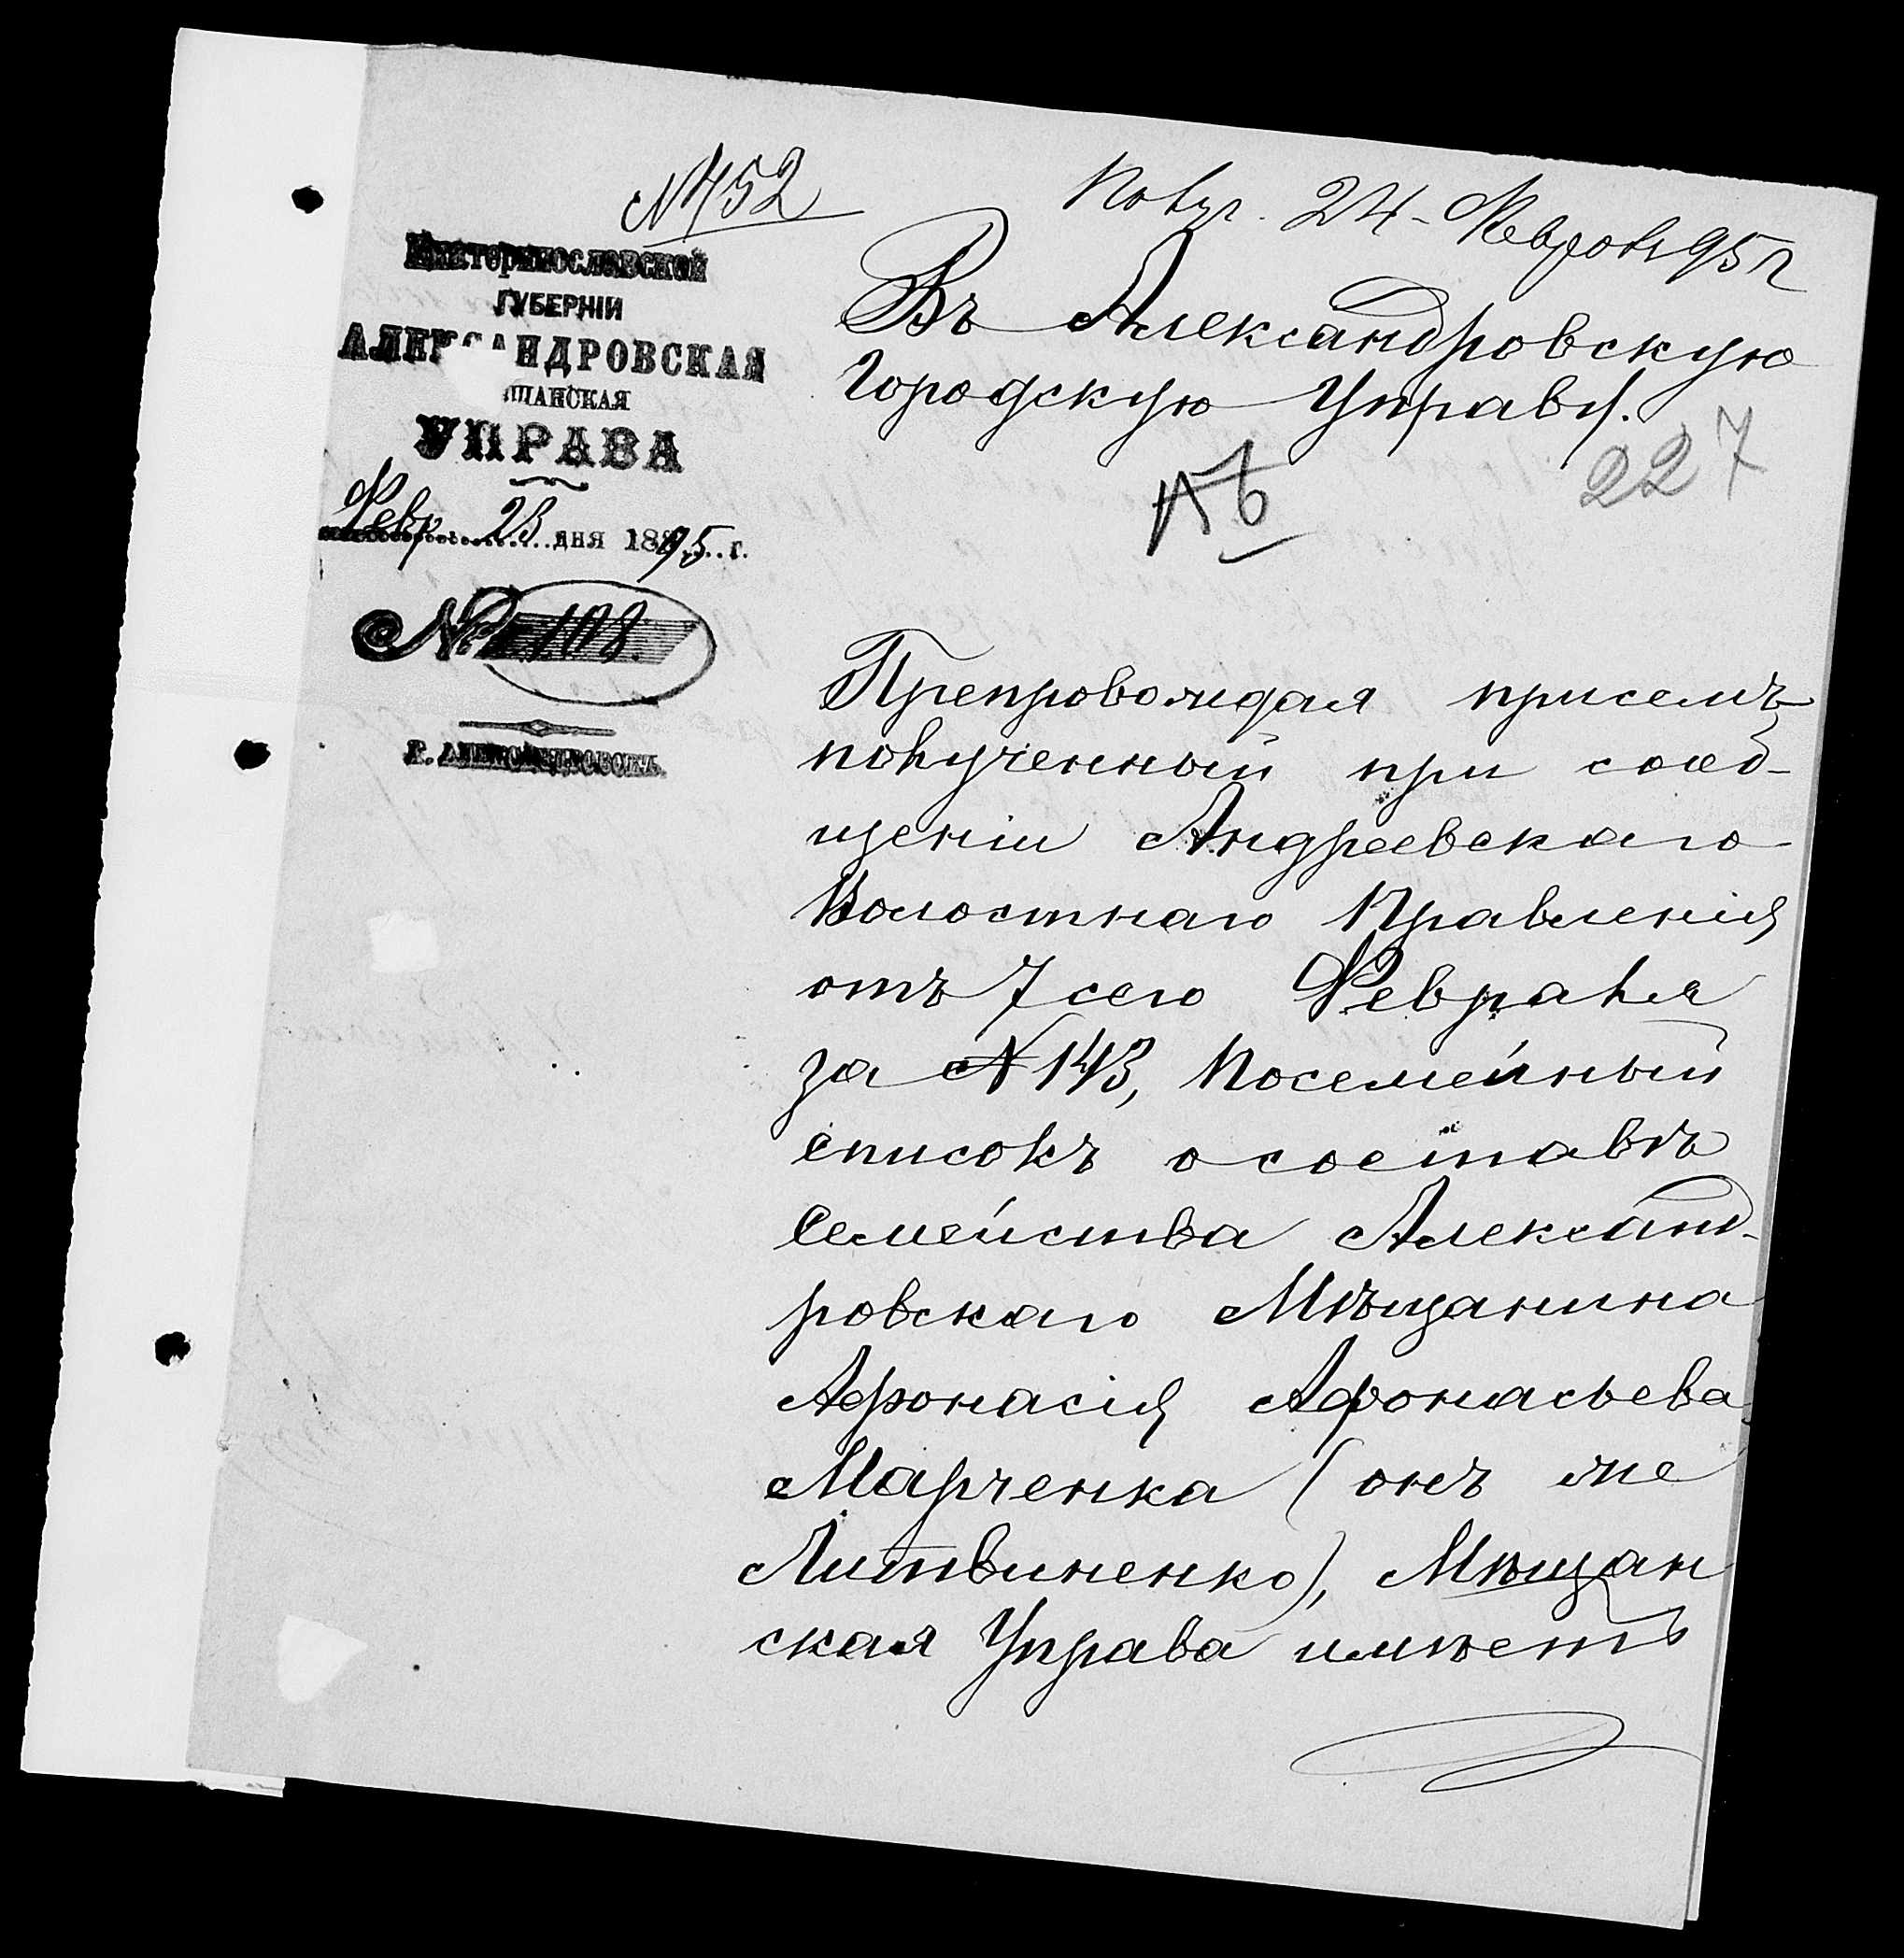 №452
Получ. 24 Февраля 95 г
ЕКАТЕРИНОСЛАВСКОЙ
ГУБЕРНІИ
АЛЕКСАНДРОВСКАЯ
ЩАНСКАЯ
УПРАВА
Февр 23 дня 1895 г.
№ 108.
Г. АЛЕКСАНДРОВСКЪ.
Въ Александровскую
Городскую Управу.
227
Препровождая присемъ
полученный при сооб-
щеніи Андреевскаго
Волостнаго Правленія
отъ 7 сего Февраля
за №143, Посемейный
списокъ о составѣ
Семейства Александ-
ровскаго Мѣщанина
Афонасія Афонасьева
Марченка (онъ же
Литвиненко), Мѣщан
ская Управа имѣетъ